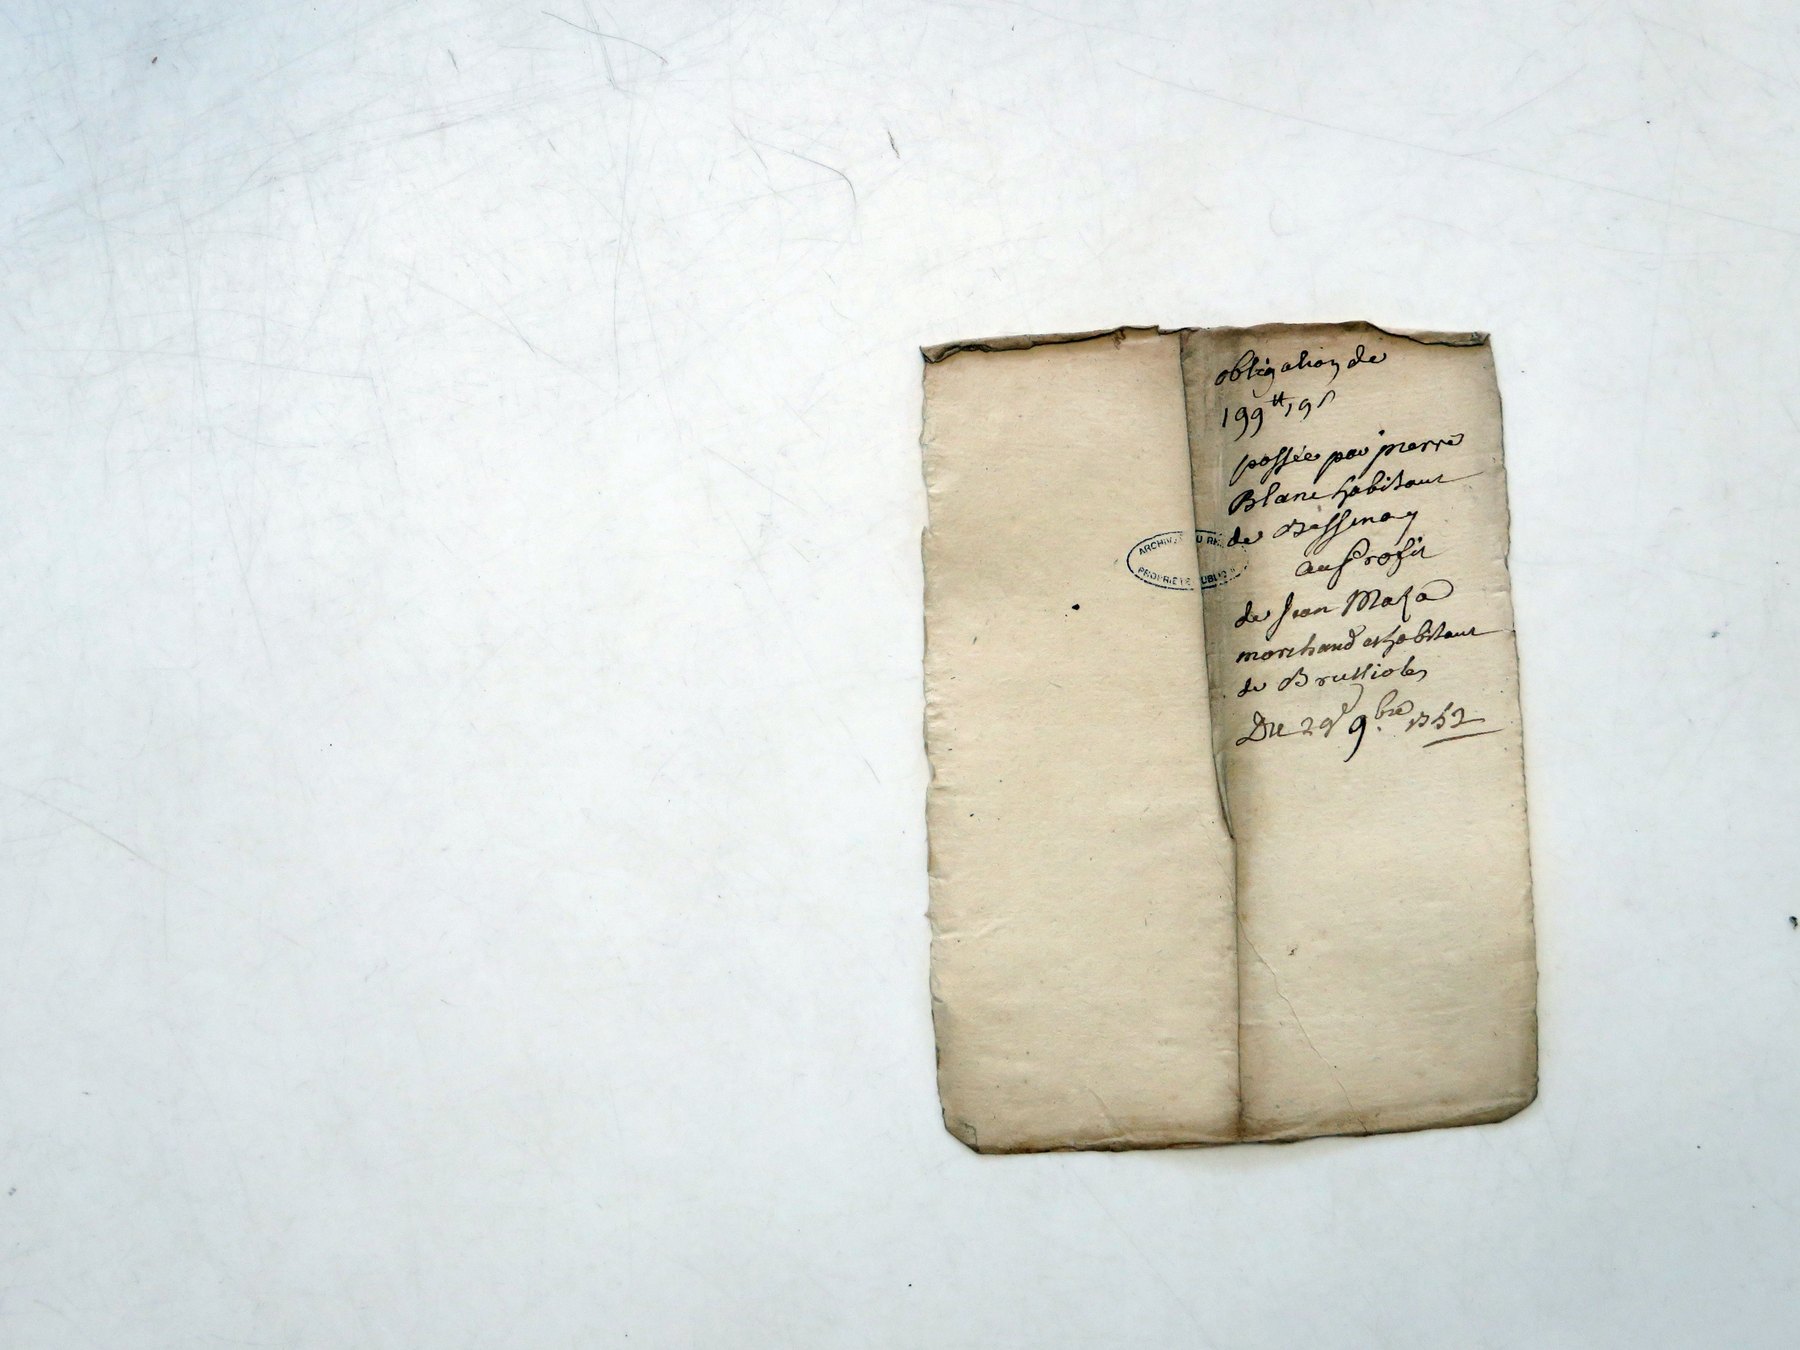 obligation de
199ᵗᵗ 19ˢ
passée par pierre
Blanc habitant
de Bessenay
au profit
de Jean Maza
marchand et habitant
de Brussioles
Du 29ᵉ 9.bre 1752
ARCHIVES DU RH
PROPRIETE PUBLIQUE